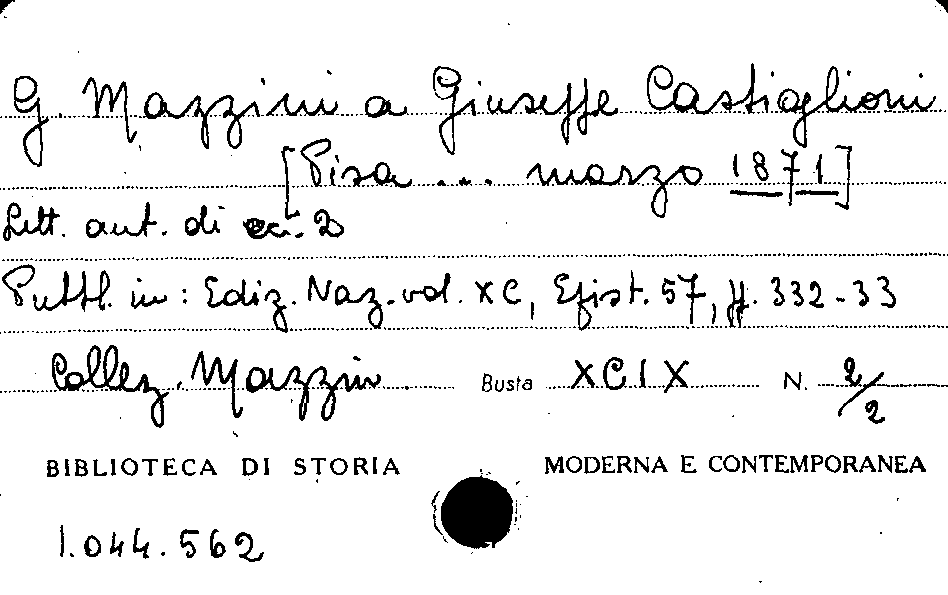 G. Mazzini a Giuseppe Castiglioni
[Pisa ... marzo 1871]
Lett. aut. di cc. 2
Pubbl. in: Ediz. Naz. vol. XC, Epist. 57, pp. 332-33
Collez. Mazzini Busta XCIX N. 2/2
BIBLIOTECA DI STORIA MODERNA E CONTEMPORANEA
1.044.562